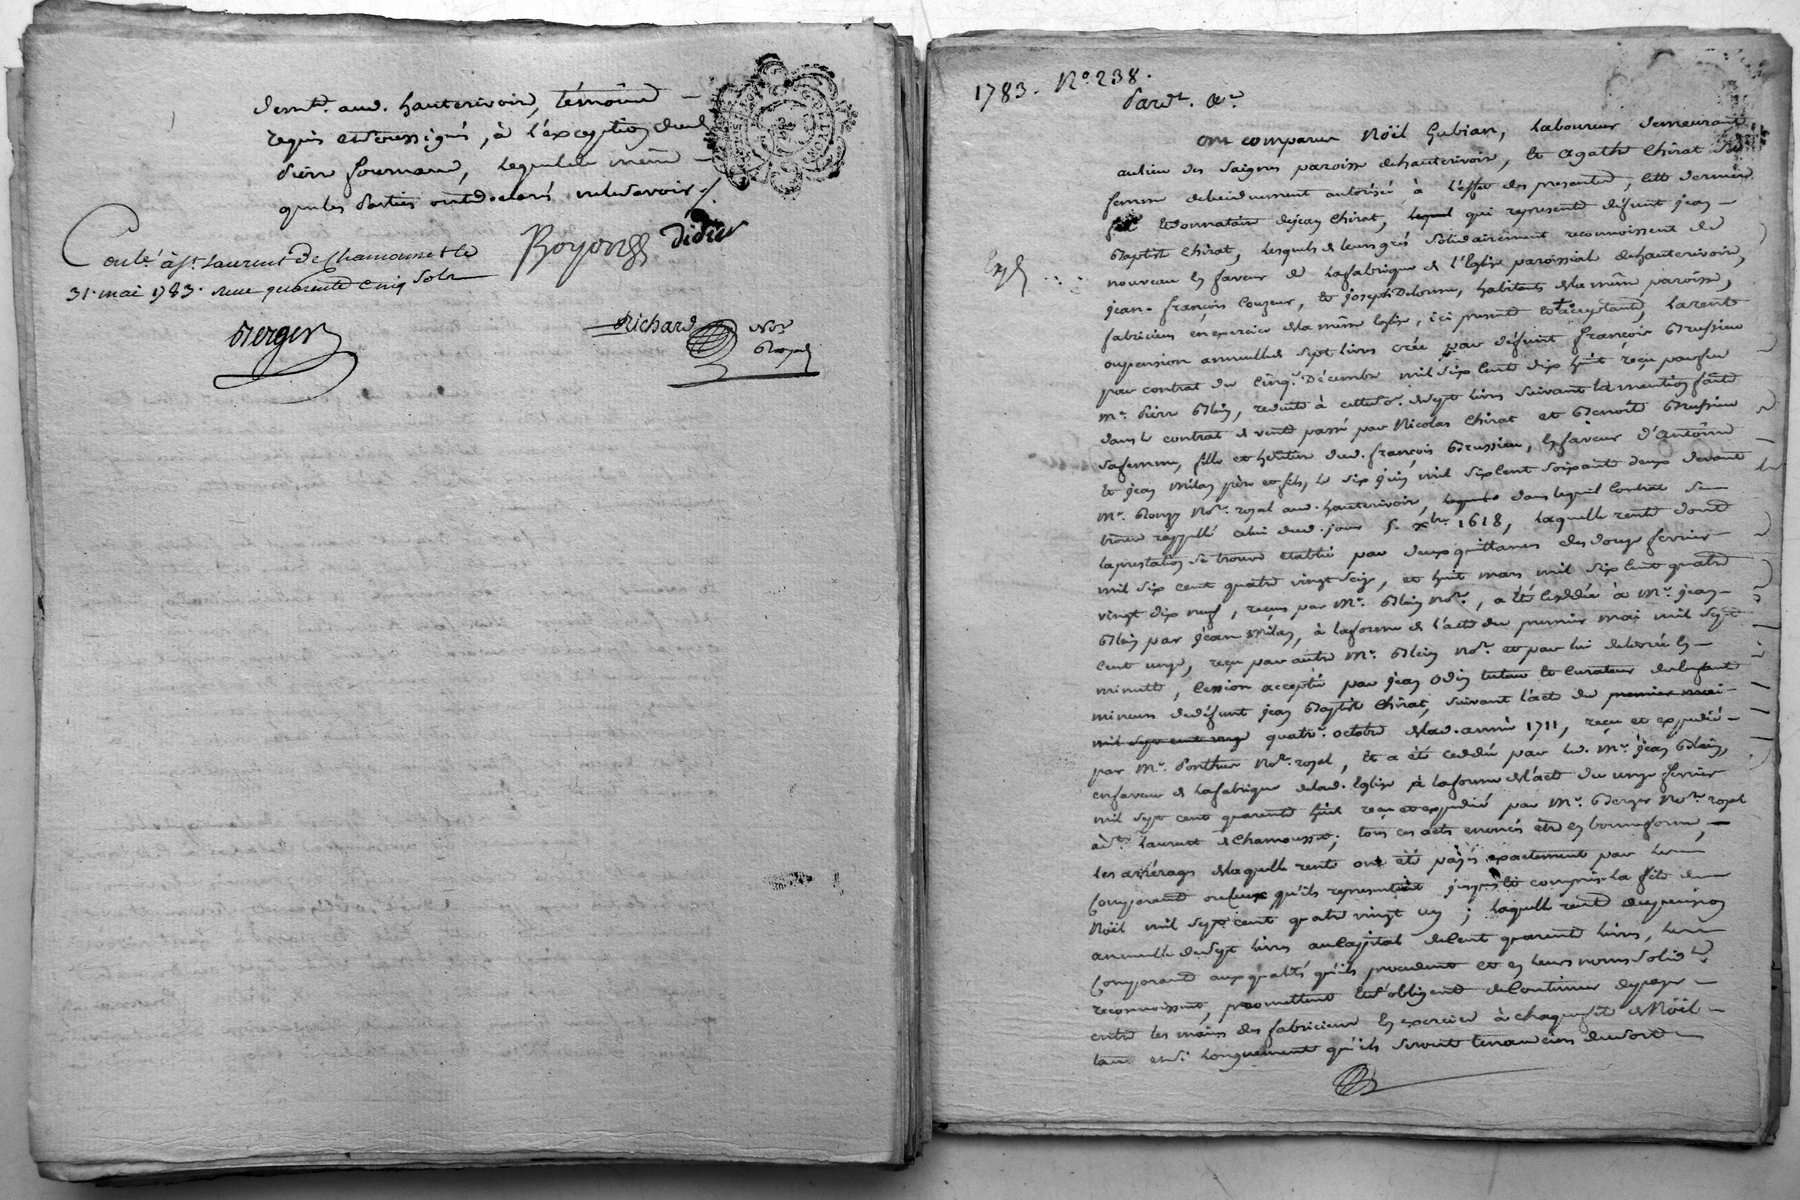 demt. aud. hauterivoir, témoins
requis et soussignés, à l'exception dud.
pierre fournand, lequel de même
que les parties ont déclaré ne le savoir./.
Royon Didier
Conlé. à St. Laurent De Chamousset le
31. mai 1783. reçu quarente cinq sols
Berger
Richard Nore. Royal
1783. No. 238.
Pardt. &c.
ont comparu Noël Gubian, laboureur demeurant
au lieu des Saignes paroisse de hauterivoir, et agathe Chirat sa
femme de lui duement autorisée à l'effet des presentes, cette derniere
et donnataire de jean Chirat, lequel qui represente défunt jean
Baptiste Chirat, lesquels de leurs grés solidairement reconnoissent de
nouveau en faveur de la fabrique de l'Eglise paroissiale de hauterivoir,
jean-françois Couzeur, et joseph Delorme, habitants de la même paroisse,
fabriciens en exercice de la même Eglise, ici present et acceptants, la rente
ou pension annuelle de sept livres crée par défunt françois Brussieu
par contrat du cinq. Décembre mil six cent dix huit reçu par feu
Me. pierre Blein, reduite à cette so. de sept livres suivant la mention faite
dans le contrat de vente passé par Nicolas Chirat et Benoite Brussieu
sa femme, fille et héritiere dud. françois Brussieu, en faveur d'Antoine
et jean Milan père et fils, le six juin mil six cent soixante deux devant
Me. Rony Nore. royal aud. hauterivoir, lequel dans lequel Contrat se
trouve rappellé celui dud. jour 5. xbre. 1618, laquelle rente dont
la prestation se trouve etablie par deux quittances des douze fevrier
mil six cent quatre vingt seize, et huit mars mil six cent quatre
vingt dix neuf, reçues par Me. Blein Nore., a été ceddée à Me. jean
Blein par jean Milan, à la forme de l'acte du premier mai mil sept
cent onze, reçu par autre Me. Blein Nore. et par lui delivrée en
minutte, Cession acceptée par jean Odin tuteur et Curateur des enfants
mineurs de défunt jean Baptiste Chirat, suivant l'acte du premier mai
mil sept cent onze quatre. octobre de lad. année 1711, reçu et expedié
par Me. Ponthus Nore. royal, et a été ceddée par led. Me. jean Blein,
en faveur de la fabrique de lad. Eglise à la forme de l'acte du onze fevrier
mil sept cent quarente huit reçu et expedié par Me. Berger Nore. royal
à St. Laurent de Chamousset; tous ces actes enoncés être en bonne forme,
les arrérages de laquelle rente ont été payés exactement par les
Comparants ou ceux qu'ils representent jusques et compris la fête de
Noël mil sept cent quatre vingt un; laquelle rente ou pension
annuelle de sept livres au Cappital de Cent quarente livres, les
Comparants aux qualités qu'ils procedent et en leurs noms solidres.
reconnoissent, promettent et s'obligent de Continuer de payer
entre les mains des fabriciens en exercice à chaque fête de Noël
tant et si longuement qu'ils seront tenanciers du sort